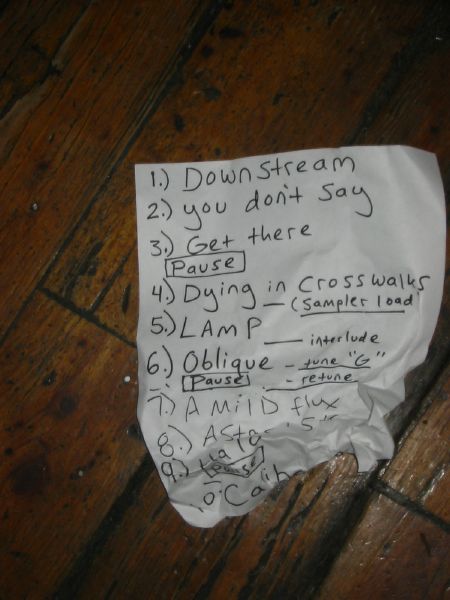 1.) Downstream
2.) you don't say
3.) Get there
Pause
4.) Dying in Crosswalks
— (Sampler load
5.) LAMP — interlude
6.) Oblique - tune "G"
Pause - retune
7.) A MILD flux
8.)
9.)
Pause